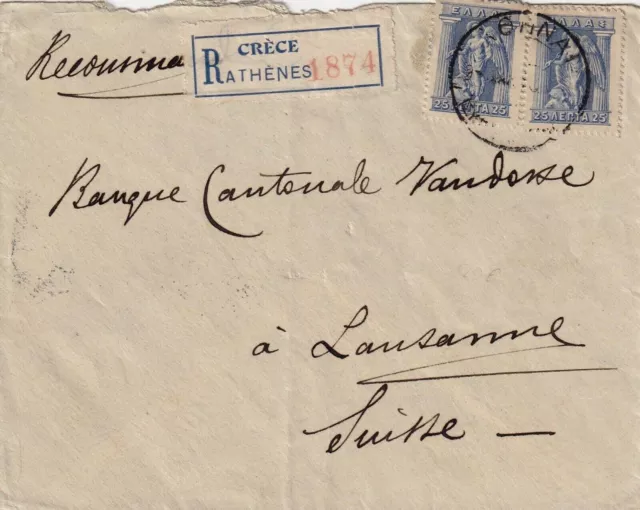 Recomma
CRÈCE
R ATHÈNES 1874
ΕΛΛΑΣ
25 ΛΕΠΤΑ 25
ΕΛΛΑΣ
25 ΛΕΠΤΑ 25
ΑΘΗΝΑΙ
Banque Cantonale Vaudoise
à Lausanne
Suisse —